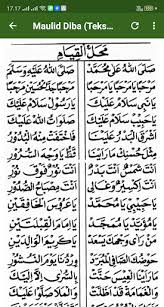 17.17
Maulid Diba (Teks...
مَحَلُّ الْقِيَامِ
صَلَّى اللهُ عَلَى مُحَمَّدْ صَلَّى اللهُ عَلَيْهِ وَسَلَّمْ
مَرْحَبًا يَا مَرْحَبًا يَا مَرْحَبًا مَرْحَبًا جَدَّ الْحُسَيْنِ مَرْحَبًا
يَا نَبِي سَلَامٌ عَلَيْكَ يَا رَسُولْ سَلَامٌ عَلَيْكَ
يَا حَبِيبْ سَلَامٌ عَلَيْكَ صَلَوَاتُ اللهِ عَلَيْكَ
أَشْرَقَ الْبَدْرُ عَلَيْنَا فَاخْتَفَتْ مِنْهُ الْبُدُورُ
مِثْلَ حُسْنِكَ مَا رَأَيْنَا قَطُّ يَا وَجْهَ السُّرُورِ
أَنْتَ شَمْسٌ أَنْتَ بَدْرٌ أَنْتَ نُورٌ فَوْقَ نُورٍ
أَنْتَ إِكْسِيرٌ وَغَالِي أَنْتَ مِصْبَاحُ الصُّدُورِ
يَا حَبِيبِي يَا مُحَمَّدْ يَا عَرُوسَ الْخَافِقَيْنِ
يَا مُؤَيَّدْ يَا مُمَجَّدْ يَا إِمَامَ الْقِبْلَتَيْنِ
مَنْ رَأَى وَجْهَكَ يَسْعَدْ يَا كَرِيمَ الْوَالِدَيْنِ
حَوْضُكَ الصَّافِى الْمُبَرَّدْ وِرْدُنَا يَوْمَ النُّشُورِ
مَا رَأَيْنَا الْعِيسَ حَنَّتْ بِالسُّرَى إِلَّا إِلَيْكَ